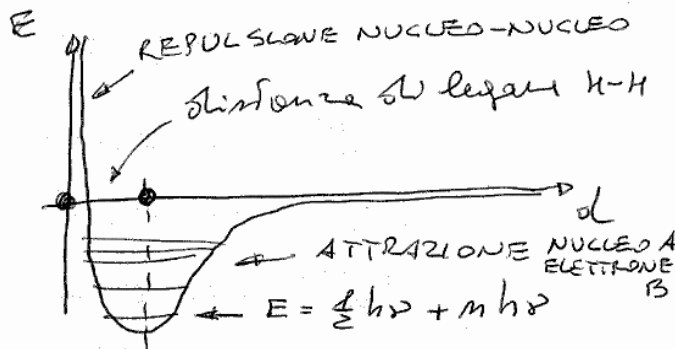 E
REPULSIONE NUCLEO-NUCLEO
distanza di legame H-H
d
ATTRAZIONE NUCLEO A
ELETTRONE
B
E = 1/2 hν + n hν